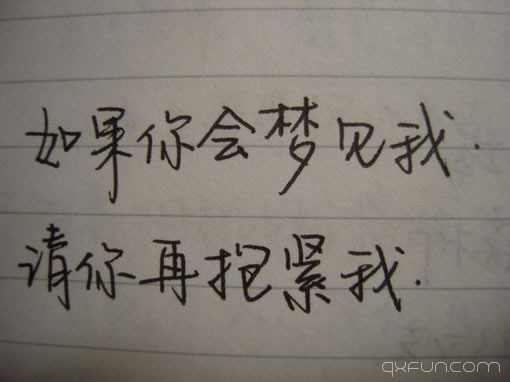 如果你会梦见我.
请你再抱紧我.
qxfun.com